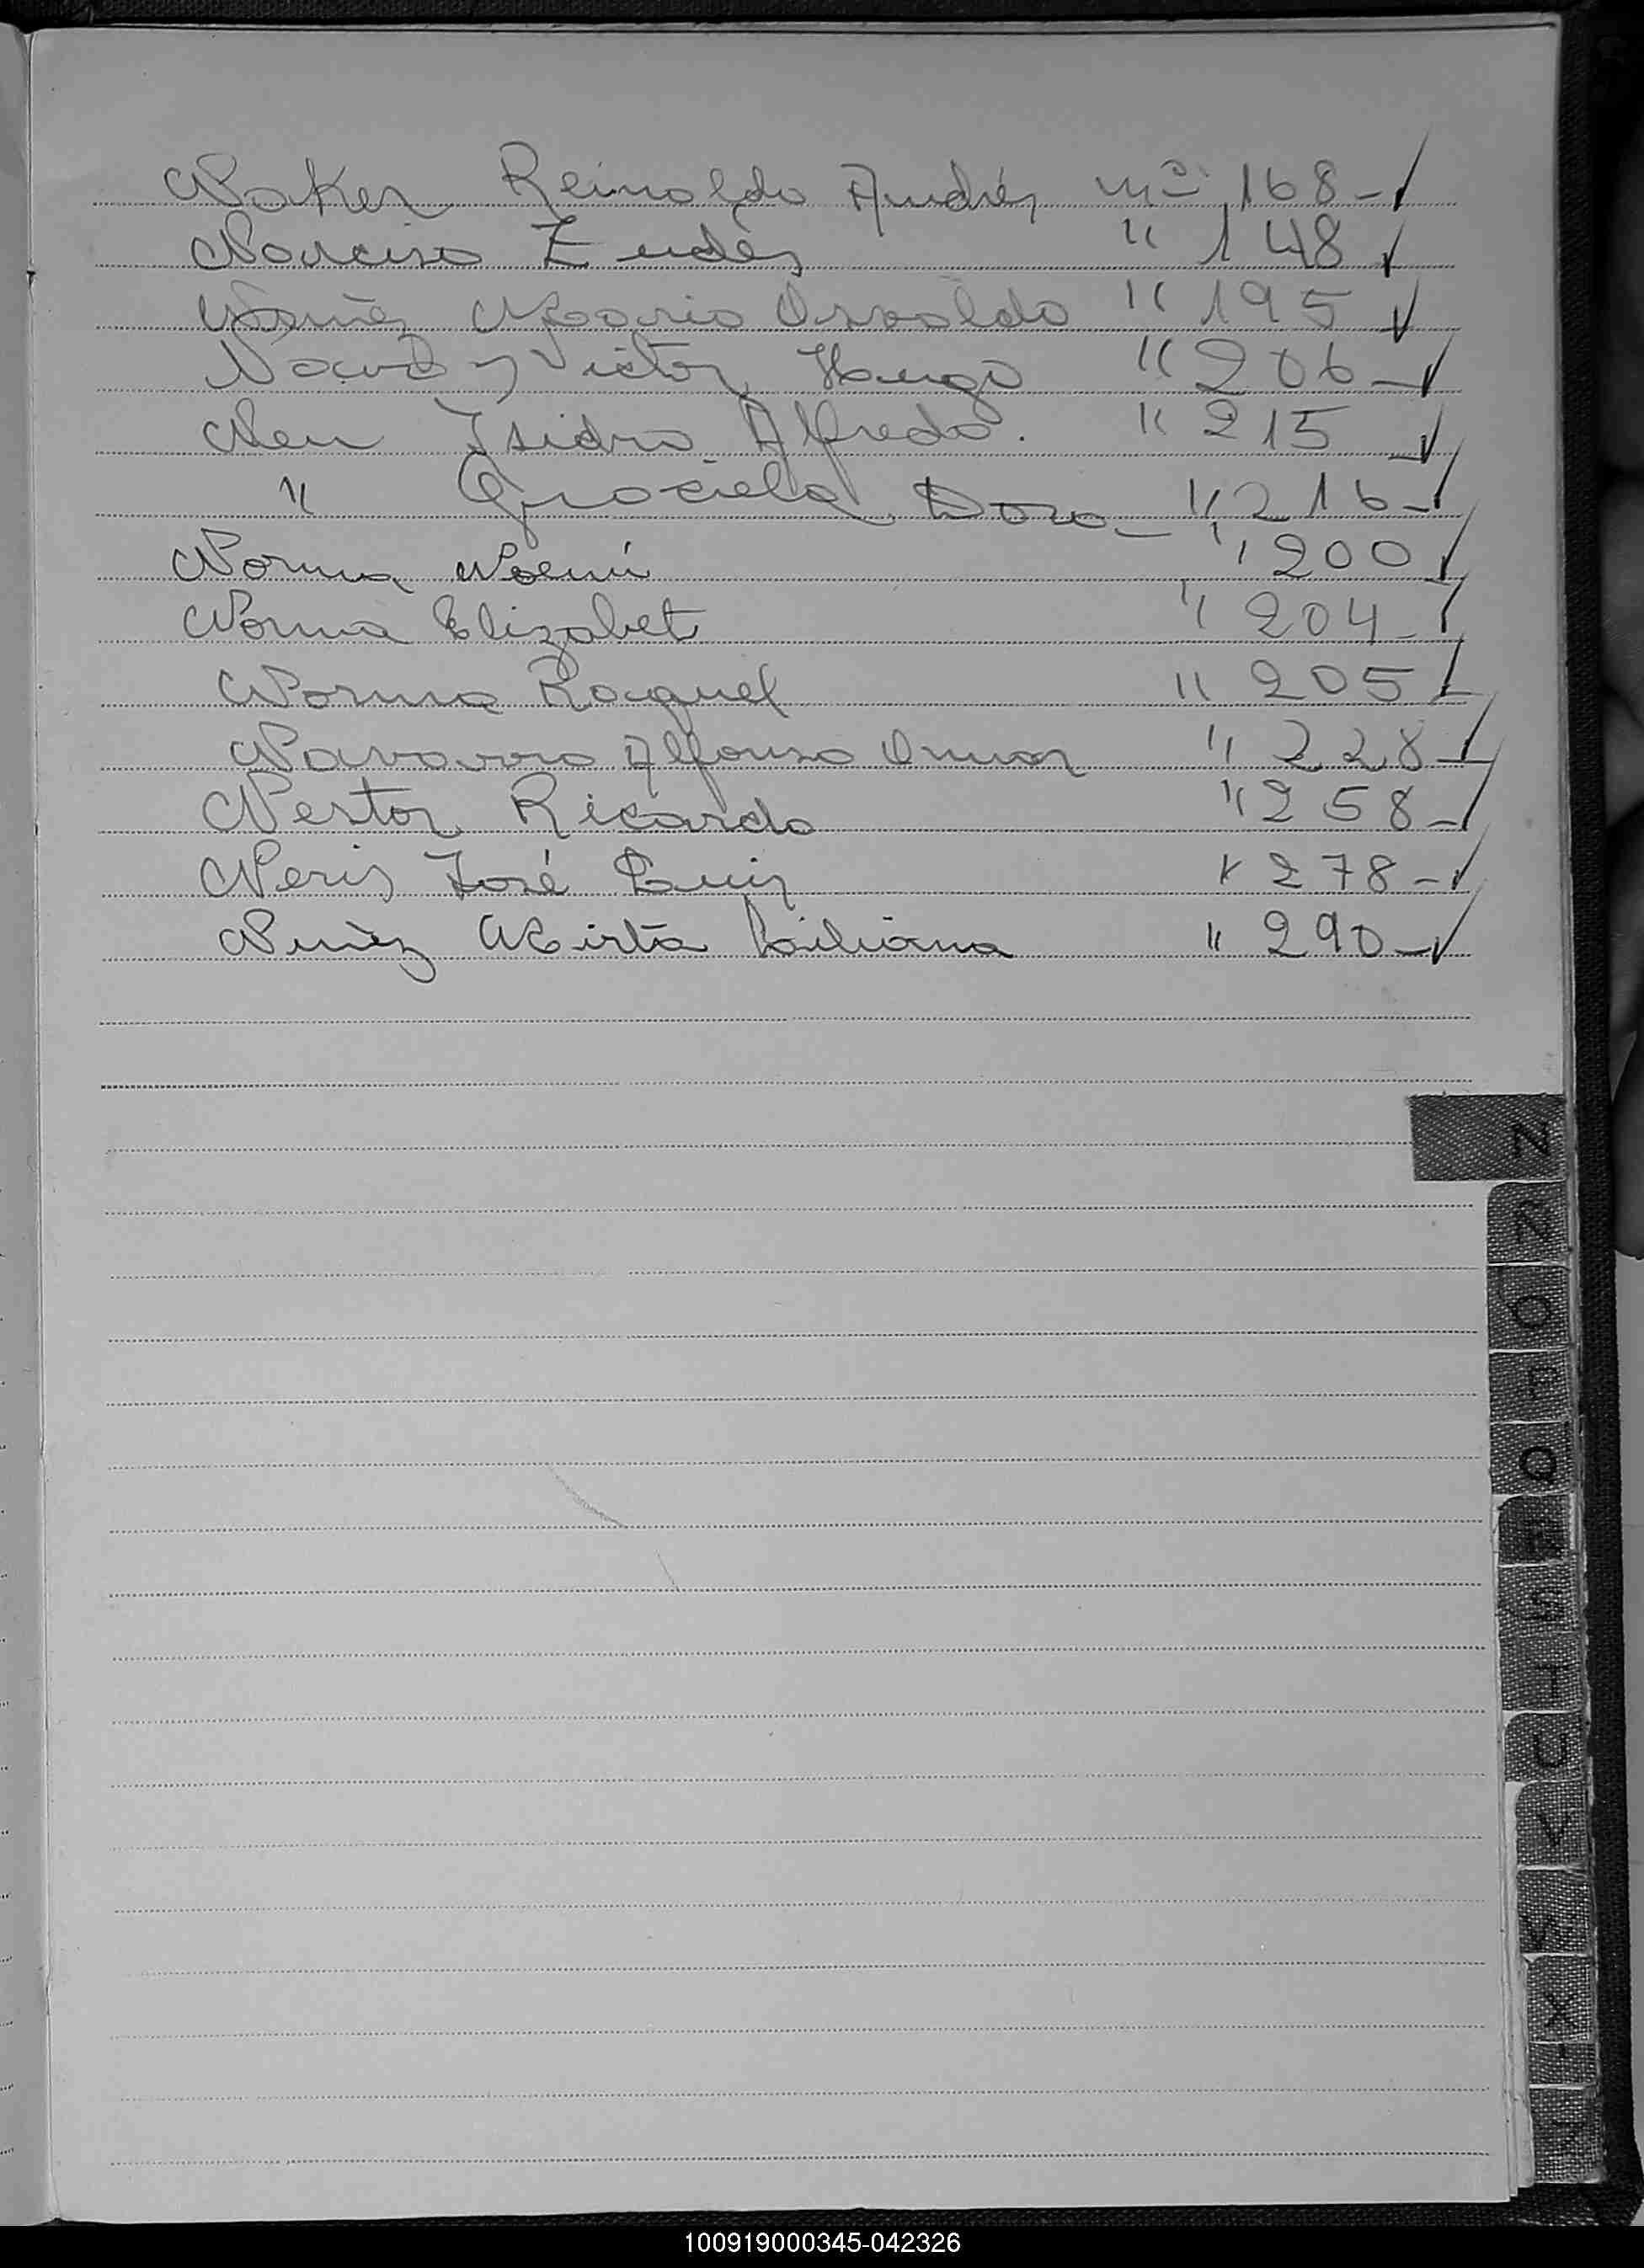 Naker Reinoldo Andrés nº 168 -
Narciso Eudes " 148
Nuñez Mario Osvaldo " 195
Víctor Hugo " 206 -
Neu Isidro Alfredo. " 215
" Graciela Dora - " 216 -
Norma Noemí " 200
Norma Elizabet " 204 -
Norma Raquel " 205
Navarro Alfonso Omar " 228 -
Nestor Ricardo " 258 -
Neris José Luis " 278 -
Nuñez Mirta Liliana " 290 -
N
Ñ
O
P
Q
R
S
T
U
V
W
X
Y
100919000345-042326